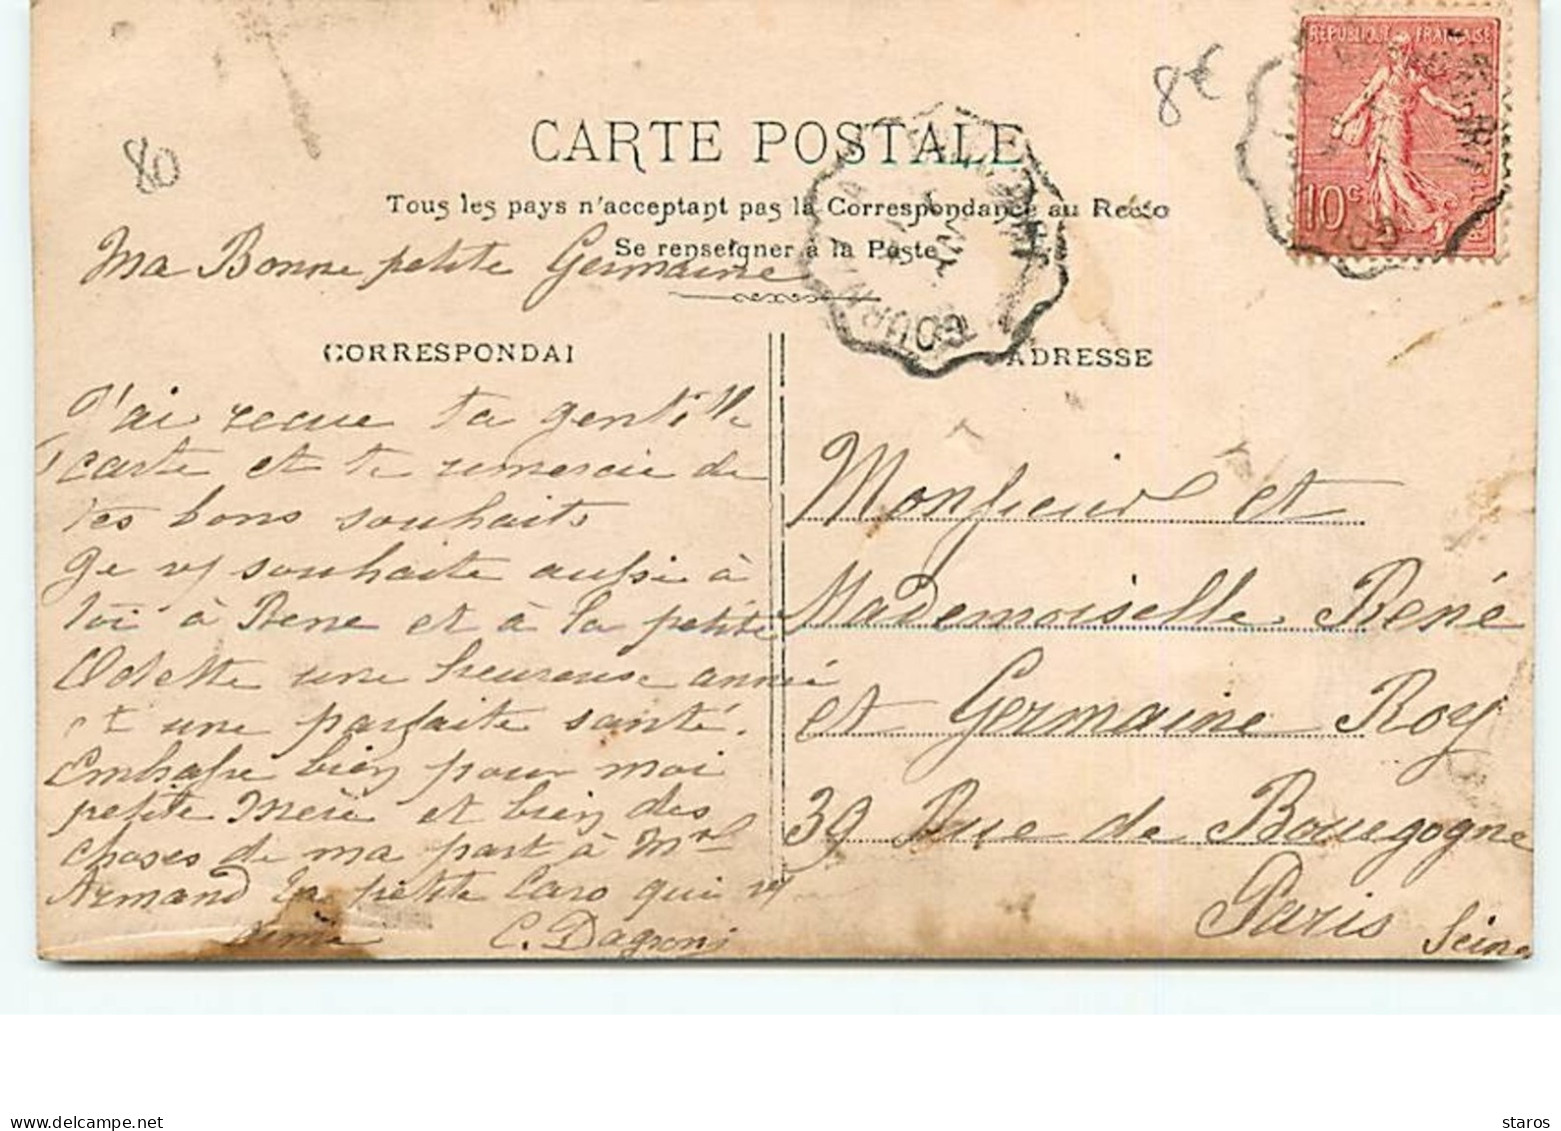 8€
80
REPUBLIQUE FRANÇAISE
10c
CARTE POSTALE
Tous les pays n'acceptant pas la Correspondance au Recto
Se renseigner à la Poste
Ma Bonne petite Germaine
CORRESPONDAI
J'ai recue ta gentille
carte et te remercie de
tes bons souhaits
Je vs souhaite aussi à
toi à Rene et à la petite
Odette une heureuse année
et une parfaite santé.
Embrasse bien pour moi
petite Mère et bien des
choses de ma part à Mr
Armand la petite Caro qui vs
aime C. Dagron
ADRESSE
Monsieur et
Mademoiselle René
et Germaine Roy
39 Rue de Bourgogne
Paris Seine
delcampe.net
staros